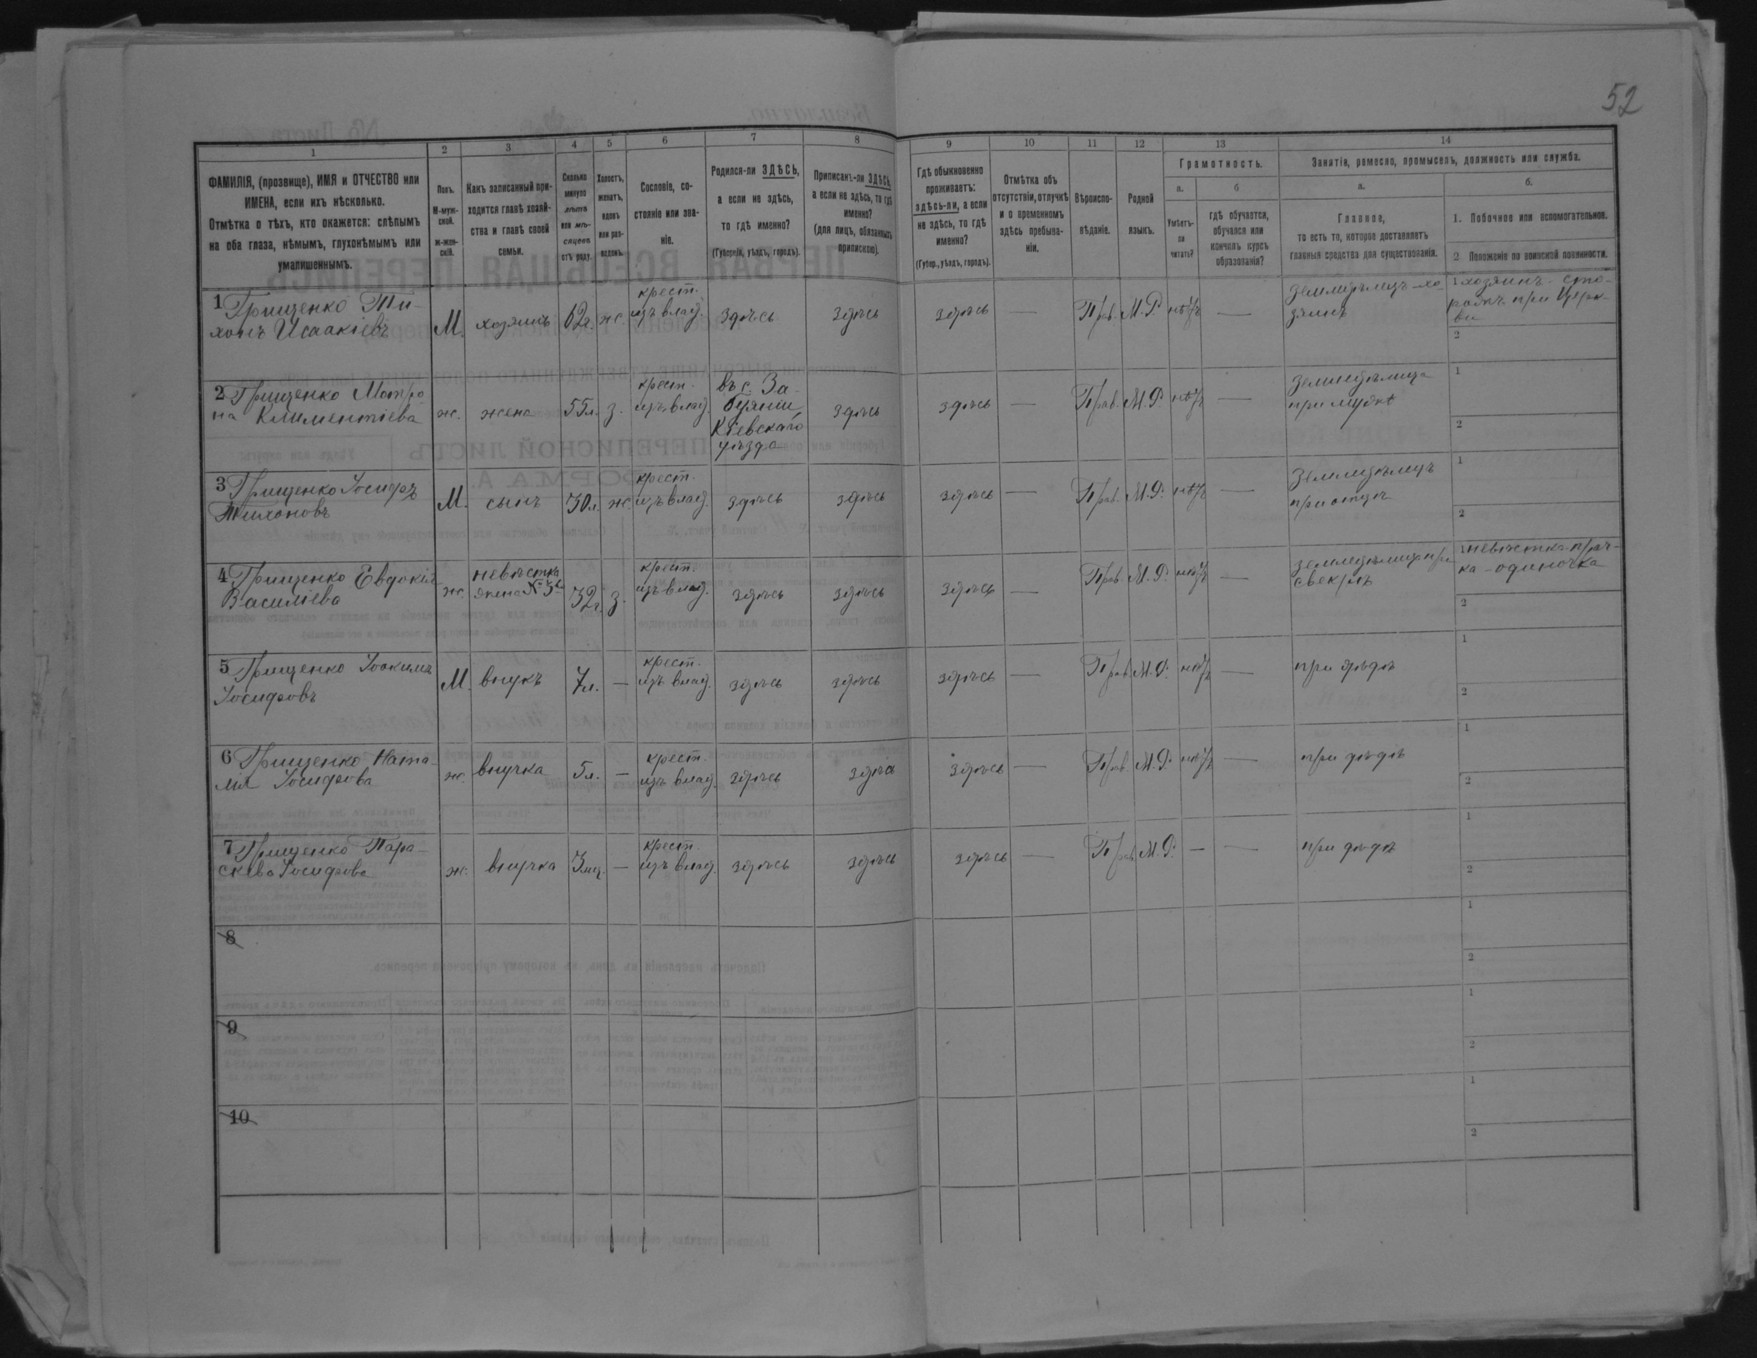 52
1 2 3 4 5 6 7 8 9 10 11 12 13 14
ФАМИЛІЯ, (прозвище), ИМЯ и ОТЧЕСТВО или
ИМЕНА, если ихъ нѣсколько.
Отмѣтка о тѣхъ, кто окажется: слѣпымъ
на оба глаза, нѣмымъ, глухонѣмымъ или
умалишеннымъ.
Полъ.
М-муж-
ской.
ж-жен-
скій.
Какъ записанный при-
ходится главѣ хозяй-
ства и главѣ своей
семьи.
Сколько
минуло
лѣтъ
или мѣ-
сяцевъ
отъ роду.
Холостъ,
женатъ,
вдовъ
или раз-
веденъ.
Сословіе, со-
стояніе или зва-
ніе.
Родился-ли ЗДѢСЬ,
а если не здѣсь,
то гдѣ именно?
(Губернія, уѣздъ, городъ).
Приписанъ-ли ЗДѢСЬ,
а если не здѣсь, то гдѣ
именно?
(для лицъ, обязанныхъ
припискою).
Гдѣ обыкновенно
проживаетъ:
здѣсь-ли, а если
не здѣсь, то гдѣ
именно?
(Губер., уѣздъ, городъ).
Отмѣтка объ
отсутствіи, отлучкѣ
и о временномъ
здѣсь пребыва-
ніи.
Вѣроиспо-
вѣданіе.
Родной
языкъ.
Грамотность.
а.
Умѣетъ-
ли
читать?
б
гдѣ обучается,
обучался или
кончилъ курсъ
образованія?
Занятія, ремесло, промыселъ, должность или служба.
а.
Главное,
то есть то, которое доставляетъ
главныя средства для существованія.
б.
1. Побочное или вспомогательное.
2 Положеніе по воинской повинности.
1 Грищенко Ти-
хонъ Исаакіевъ
М. хозяинъ 62г. ж.
крест.
изъ влад.
здѣсь здѣсь здѣсь — Прав. М.Р. нѣтъ —
Земледѣлецъ-хо
зяинъ
1 хозяинъ - сто-
рожъ при Церк-
ви
2
2 Грищенко Матро
на Климентіева
ж. жена 55л. з.
крест.
изъ влад.
въ с. За-
буянїи
Кіевскаго
уѣзда
здѣсь здѣсь — Прав. М.Р. нѣтъ —
Земледѣлица
при мужѣ
1
2
3 Грищенко Іосифъ
Тихоновъ
М. сынъ 30л. ж.
крест.
изъ влад.
здѣсь здѣсь здѣсь — Прав. М.Р. нѣтъ —
Земледѣлецъ
при отцѣ
1
2
4 Грищенко Евдокія
Василіева
ж. невѣстка
жена №3го
32г. з.
крест.
изъ влад.
здѣсь здѣсь здѣсь — Прав. М.Р. нѣтъ —
земледѣлица при
свекрѣ
1 невѣстка-прач-
ка-одиночка
2
5 Грищенко Іоакимъ
Іосифовъ
М. внукъ 7л. —
крест.
изъ влад.
здѣсь здѣсь здѣсь — Прав. М.Р. нѣтъ —
при дѣдѣ
1
2
6 Грищенко Ната-
лія Іосифова
ж. внучка 5л. —
крест.
изъ влад.
здѣсь здѣсь здѣсь — Прав. М.Р. нѣтъ —
при дѣдѣ
1
2
7 Грищенко Пара-
скева Іосифова
ж. внучка 3мц. —
крест.
изъ влад.
здѣсь здѣсь здѣсь — Прав. М.Р. — —
при дѣдѣ
1
2
8
1
2
9
1
2
10
1
2